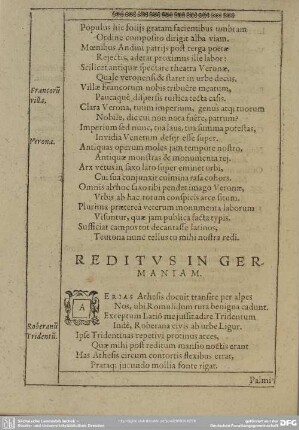 Populus hic foliis gratam facientibus umbram
Ordine composito dirigit alba viam.
Mœnibus Andini patrijs post terga
Rejectis, aderat proximus ille labor:
Scilicet antiquæ spectare theatra Veronæ,
Quale peropensis & staret in urbe decus.
Francorū
villa.
Villæ Francorum nobis tribuére mentum,
Paucaque dispersis rustica tecta casis.
Verona.
Clara Verona, tuum imperium, genus acq; tuorum
Nobile, dic cui non nota fuére, patrum?
Imperium sed nunc, tua laus, tua summa potestas,
Invidia Venetum desijt esse super.
Antiquas operum moles jam tempore nostro,
Antiquæ monstras & monumenta rei.
Arx vetus in saxo lato super eminet urbi,
Cui sua conjunxit culmina rasa cohors.
Omnis ab hoc saxo tibi pendet imago Veronæ,
Urbis ab hac totum conspicis arce situm.
Plurima prætereà veterum monumenta laborum
Visuntur, quæ jam publica facta typis.
Sufficiat campos tot decantasse latinos,
Teutona nunc tellus tu mihi nostra redi.
REDITVS IN GER-
MANIAM.
AERIAS Athesis docuit transire per alpes
Nos, ubi Romulidum rura benigna cadunt.
Exceptum Latiò me jussit adire Tridentum
Roberanū
Tridentū.
Indè, Roberana civis ab urbe Ligur.
Ipse Tridentinas repetivi protinus arces,
Quæ mihi post reditum mansio noctis erant
Has Athesis circum contortis flexibus errat,
Prataq; jucundo mollia fonte rigat.
Palmi-